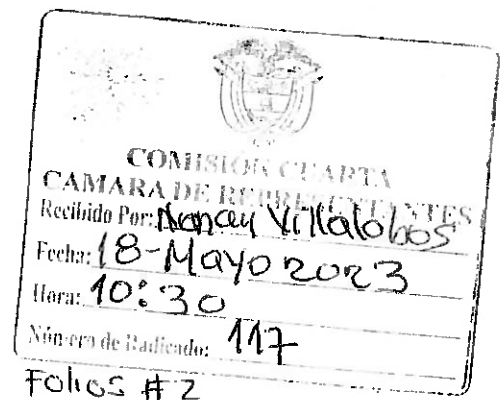 COMISIÓN CUARTA
CAMARA DE REPRESENTANTES
Recibido Por: Nancy Villalobos
Fecha: 18-Mayo 2023
Hora: 10:30
Número de Radicado: 117
Folios # 2